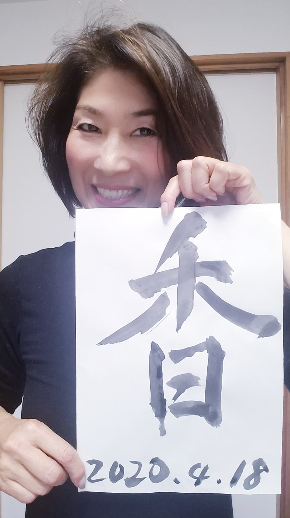 香
2020.4.18